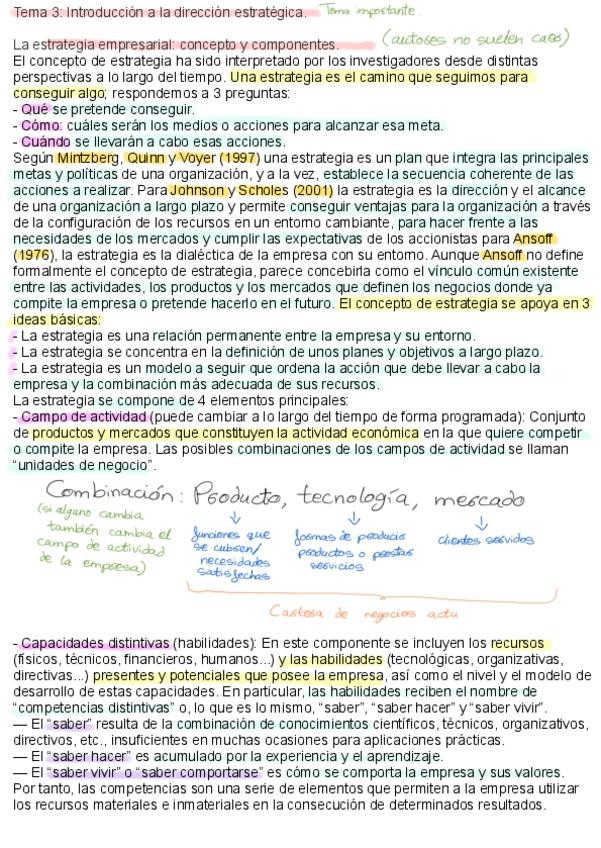 Tema 3: Introducción a la dirección estratégica. Tema importante.
La estrategia empresarial: concepto y componentes. (autores no suelen caer)
El concepto de estrategia ha sido interpretado por los investigadores desde distintas
perspectivas a lo largo del tiempo. Una estrategia es el camino que seguimos para
conseguir algo; respondemos a 3 preguntas:
- Qué se pretende conseguir.
- Cómo: cuáles serán los medios o acciones para alcanzar esa meta.
- Cuándo se llevarán a cabo esas acciones.
Según Mintzberg, Quinn y Voyer (1997) una estrategia es un plan que integra las principales
metas y políticas de una organización, y a la vez, establece la secuencia coherente de las
acciones a realizar. Para Johnson y Scholes (2001) la estrategia es la dirección y el alcance
de una organización a largo plazo y permite conseguir ventajas para la organización a través
de la configuración de los recursos en un entorno cambiante, para hacer frente a las
necesidades de los mercados y cumplir las expectativas de los accionistas para Ansoff
(1976), la estrategia es la dialéctica de la empresa con su entorno. Aunque Ansoff no define
formalmente el concepto de estrategia, parece concebirla como el vínculo común existente
entre las actividades, los productos y los mercados que definen los negocios donde ya
compite la empresa o pretende hacerlo en el futuro. El concepto de estrategia se apoya en 3
ideas básicas:
- La estrategia es una relación permanente entre la empresa y su entorno.
- La estrategia se concentra en la definición de unos planes y objetivos a largo plazo.
- La estrategia es un modelo a seguir que ordena la acción que debe llevar a cabo la
empresa y la combinación más adecuada de sus recursos.
La estrategia se compone de 4 elementos principales:
- Campo de actividad (puede cambiar a lo largo del tiempo de forma programada): Conjunto
de productos y mercados que constituyen la actividad económica en la que quiere competir
o compite la empresa. Las posibles combinaciones de los campos de actividad se llaman
“unidades de negocio”.
Combinación: Producto, tecnología, mercado
(si alguno cambia
también cambia el
campo de actividad
de la empresa)
funciones que
se cubren/
necesidades
satisfechas
formas de producir
productos o prestar
servicios
clientes servidos
Cartera de negocios actu
- Capacidades distintivas (habilidades): En este componente se incluyen los recursos
(físicos, técnicos, financieros, humanos...) y las habilidades (tecnológicas, organizativas,
directivas...) presentes y potenciales que posee la empresa, así como el nivel y el modelo de
desarrollo de estas capacidades. En particular, las habilidades reciben el nombre de
“competencias distintivas” o, lo que es lo mismo, “saber”, “saber hacer” y “saber vivir”.
— El “saber” resulta de la combinación de conocimientos científicos, técnicos, organizativos,
directivos, etc., insuficientes en muchas ocasiones para aplicaciones prácticas.
— El “saber hacer” es acumulado por la experiencia y el aprendizaje.
— El “saber vivir” o “saber comportarse” es cómo se comporta la empresa y sus valores.
Por tanto, las competencias son una serie de elementos que permiten a la empresa utilizar
los recursos materiales e inmateriales en la consecución de determinados resultados.